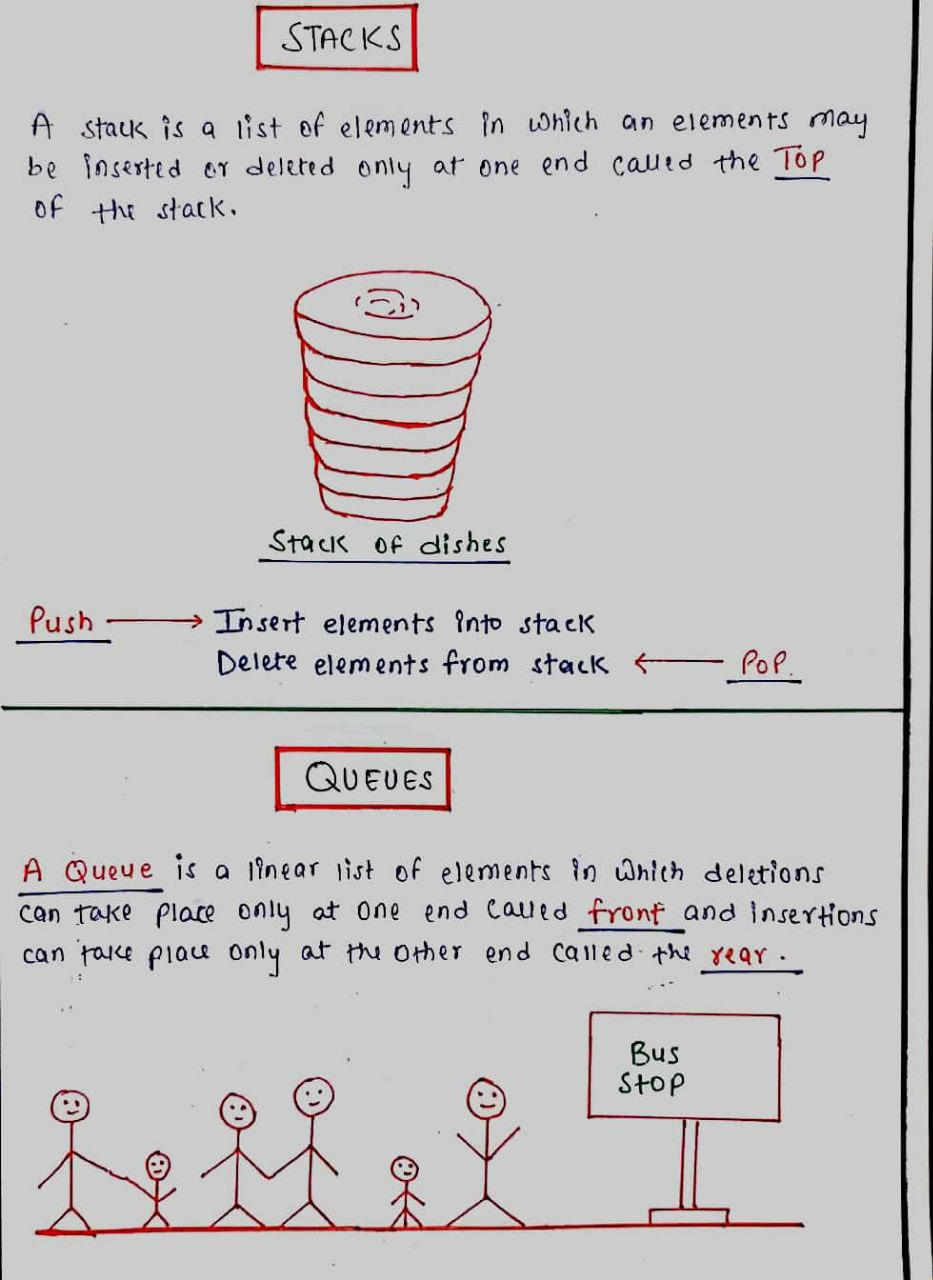 STACKS
A stack is a list of elements in which an elements may
be inserted or deleted only at one end called the Top
of the stack.
Stack of dishes
Push → Insert elements into stack
Delete elements from stack ← PoP.
QUEUES
A Queue is a linear list of elements in which deletions
can take place only at one end called front and insertions
can take place only at the other end called the rear.
Bus
Stop